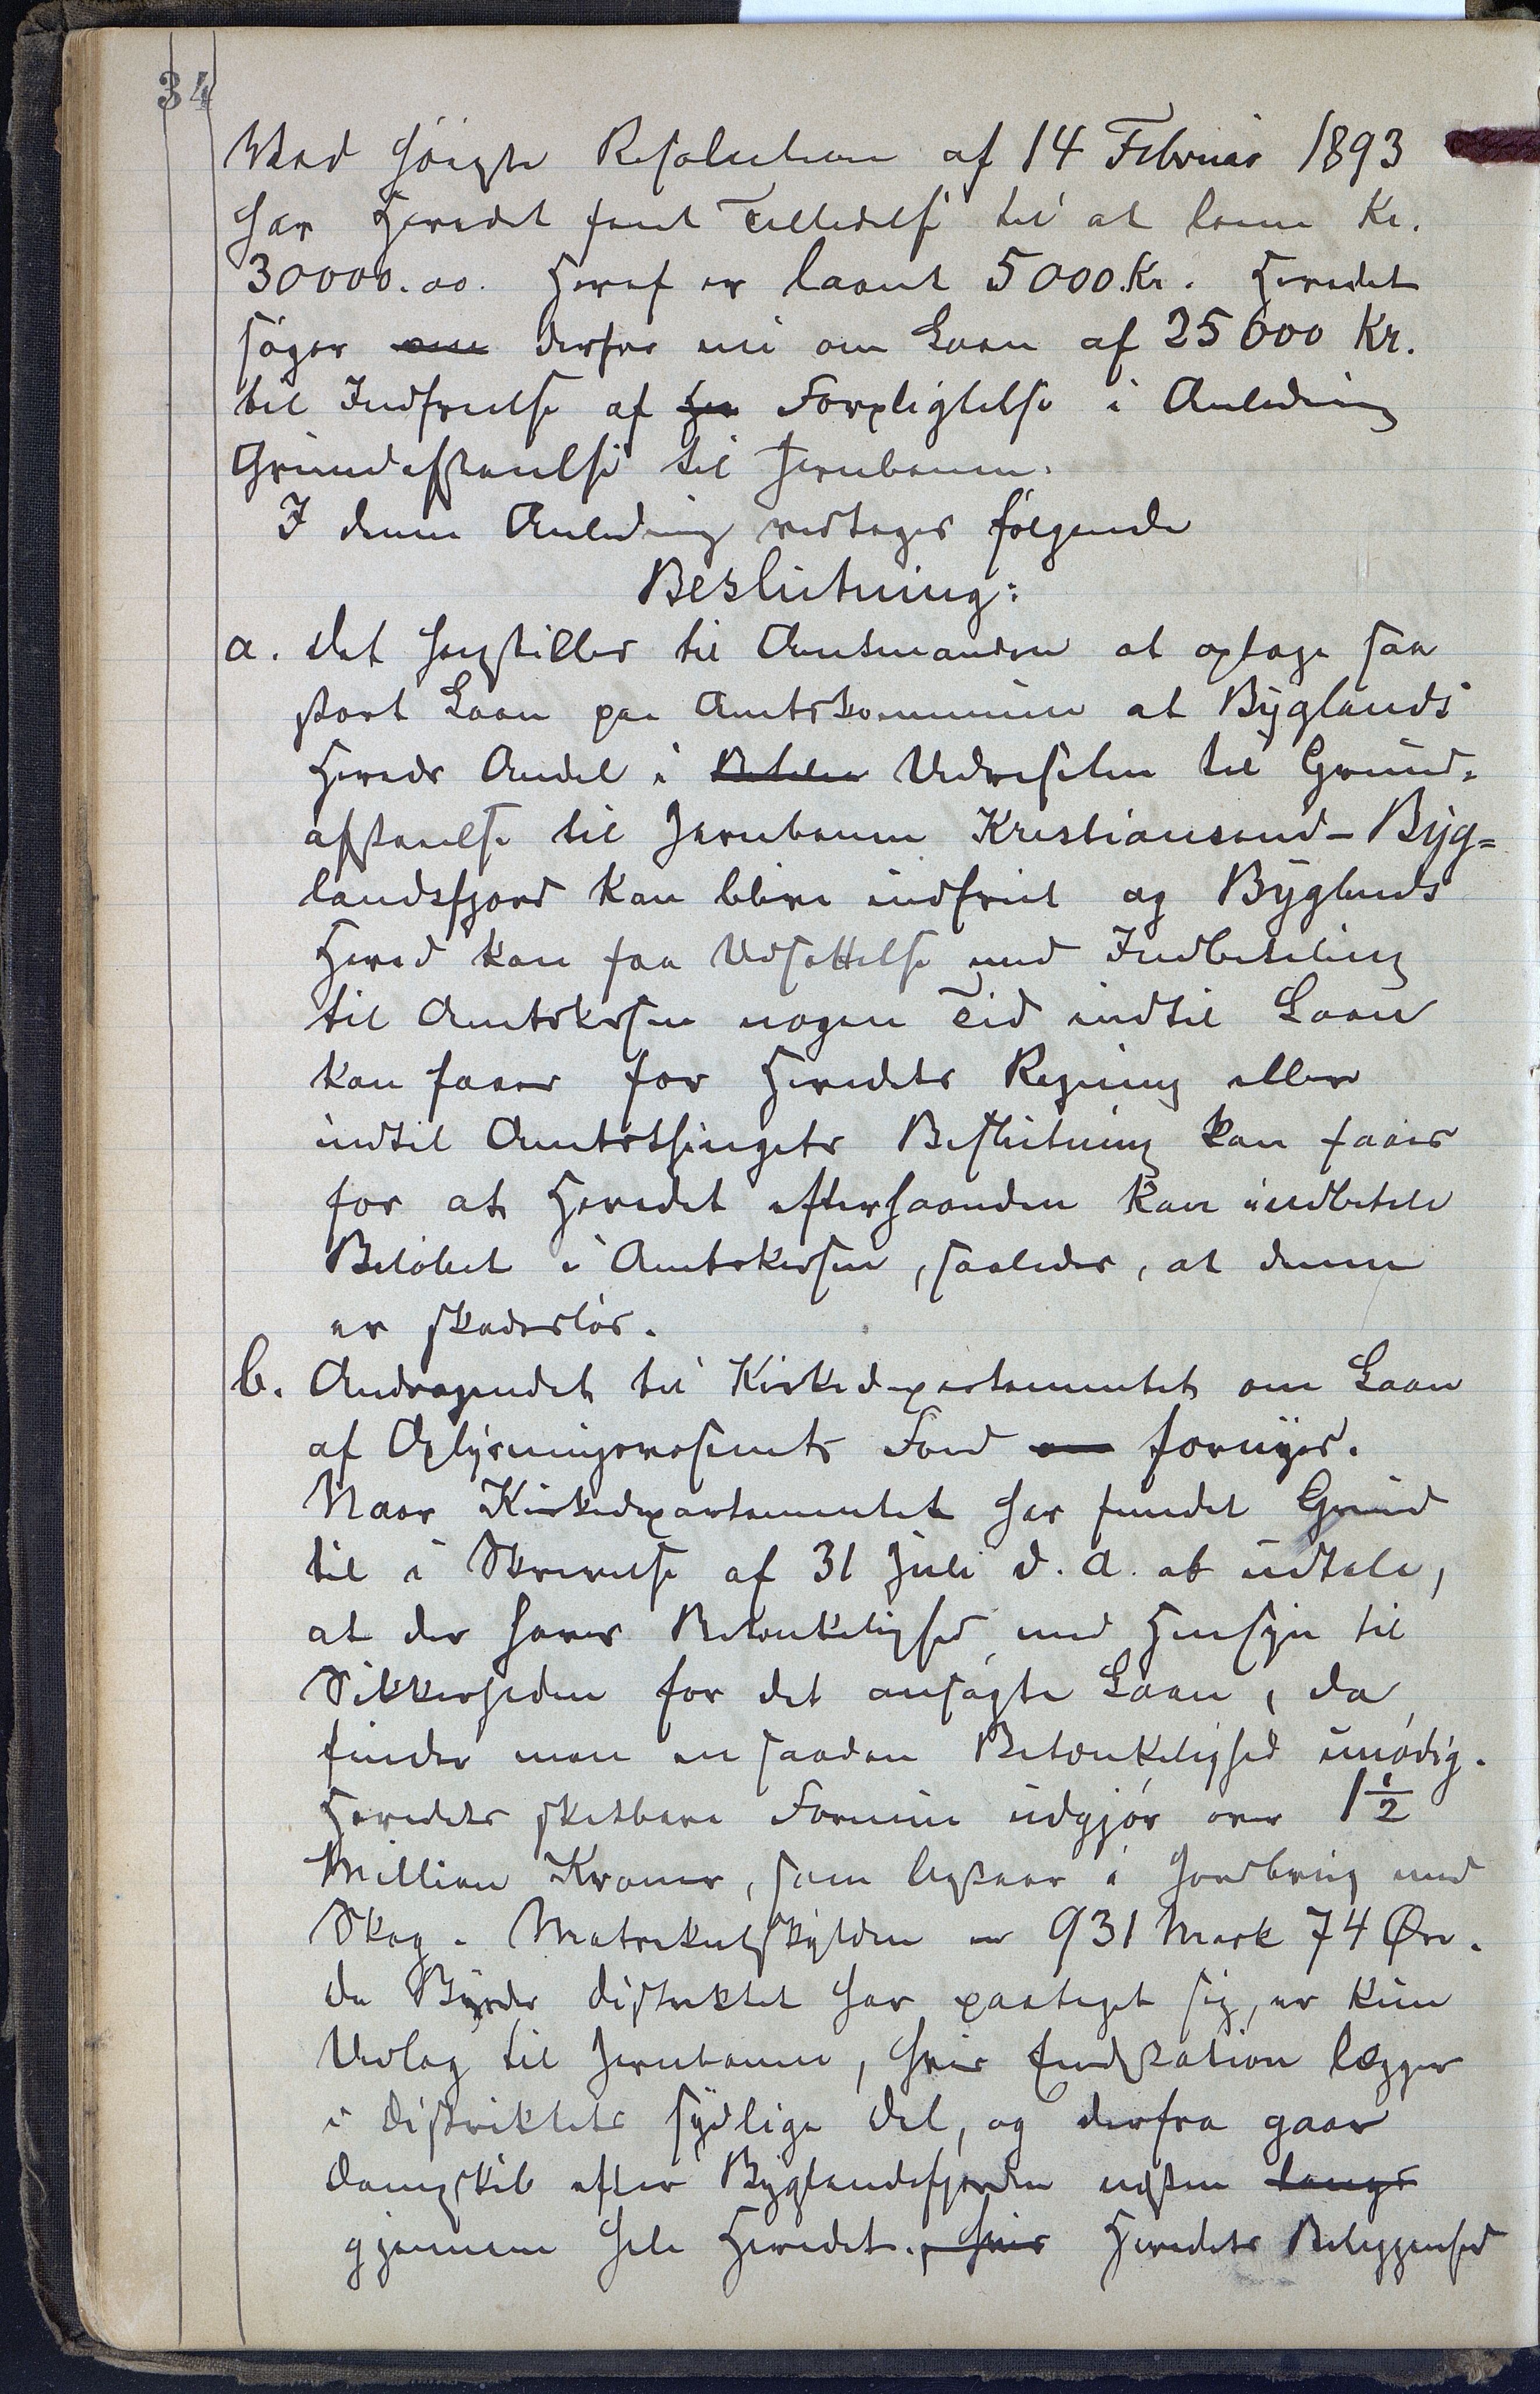 34
Med høigste Resolution af 14 Februar 1893
har Heredet faat Tilladelse til at laane Kr.
30000.00. Heraf er laant 5000.Kr. Heredet
søger om derfor nu om Laan af 25000 Kr.
til Indfrielse af Forpligtelse i Anledning
Grundafstaaelse til Jernbanen.
I denne Anledning vedtages følgende
Beslutning:
a. Det henstilles til Amtmanden at optage saa
stort Laan paa Amtskommunen at Byglands
Hereds Andel i Betalin Udredselen til Grund-
afstaaelse til Jernbanen Kristiansand-Byg=
landsfjord kan blive indfriet og Byglands
Hered kan faa Udsættelse med Indbetaling
til Amtskassen nogen Tid indtil Laan
kan faaes for Heredets Regning eller
indtil Amtsthingets Beslutning kan faaes
for at Heredet efterhaanden kan indbetale
Beløbet i Amtskassen, saaledes, at denne
er skadesløs.
b. Andragendet til Kirkedepartementet om Laan
af Oplysningsvesenets Fond om fornyes.
Naar Kirkedepartementet har fundet Grund
til i Skrivelse af 31 Juli d. A. at udtale,
at der haves Betænkelighed med Hensyn til
Sikkerheden for det ansøgte Laan, da
finder man en saadan Betænkelighed unødig.
Heredets skatbare Formue udgjør over 1 1/2
Million Kroner, som bestaar i Jordbrug med
Skog. Matrikulskylden er 931 Mark 74 Øre.
De Byrder Distriktet har paataget sig, er kun
Udlæg til Jernbanen, hvis Endstation lægges
i Distriktets sydlige Del, og derfra gaar
Dampskib efter Byglandsfjorden næsten langs
gjennem hele Heredet., hvis Heredets Beliggenhed